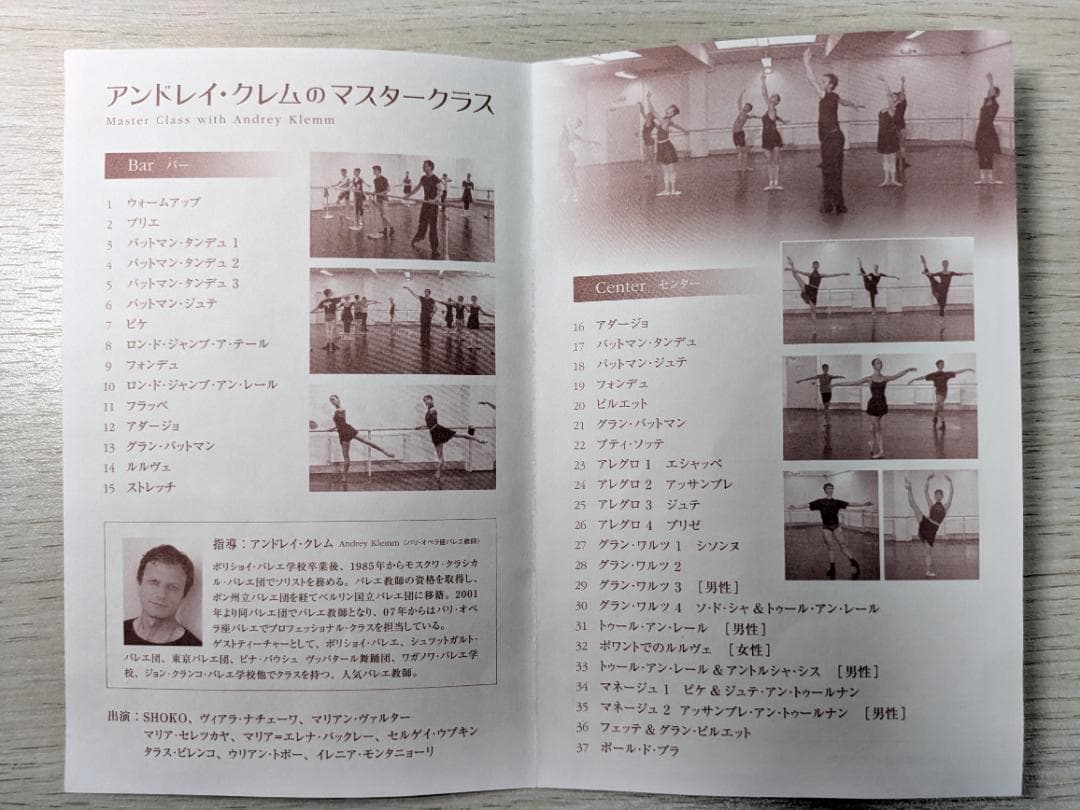 アンドレイ・クレムのマスタークラス
Master Class with Andrey Klemm
Bar バー
1 ウォームアップ
2 プリエ
3 バットマン・タンデュ 1
4 バットマン・タンデュ 2
5 バットマン・タンデュ 3
6 バットマン・ジュテ
7 ピケ
8 ロン・ド・ジャンブ・ア・テール
9 フォンデュ
10 ロン・ド・ジャンブ・アン・レール
11 フラッペ
12 アダージョ
13 グラン・バットマン
14 ルルヴェ
15 ストレッチ
指導：アンドレイ・クレム Andrey Klemm（パリ・オペラ座バレエ教師）
ボリショイ・バレエ学校卒業後、1985年からモスクワ・クラシカ
ル・バレエ団でソリストを務める。バレエ教師の資格を取得し、
ボン州立バレエ団を経てベルリン国立バレエ団に移籍。2001
年より同バレエ団でバレエ教師となり、07年からはパリ・オペ
ラ座バレエでプロフェッショナル・クラスを担当している。
ゲストティーチャーとして、ボリショイ・バレエ、シュツットガルト・
バレエ団、東京バレエ団、ピナ・バウシュ ヴッパタール舞踊団、ワガノワ・バレエ学
校、ジョン・クランコ・バレエ学校他でクラスを持つ、人気バレエ教師。
出演：SHOKO、ヴィアラ・ナチェーワ、マリアン・ヴァルター
マリア・セレツカヤ、マリア＝エレナ・バックレー、セルゲイ・ウプキン
タラス・ビレンコ、ウリアン・トポー、イレニア・モンタニョーリ
Center センター
16 アダージョ
17 バットマン・タンデュ
18 バットマン・ジュテ
19 フォンデュ
20 ピルエット
21 グラン・バットマン
22 プティ・ソッテ
23 アレグロ 1 エシャッペ
24 アレグロ 2 アッサンブレ
25 アレグロ 3 ジュテ
26 アレグロ 4 ブリゼ
27 グラン・ワルツ 1 シソンヌ
28 グラン・ワルツ 2
29 グラン・ワルツ 3 ［男性］
30 グラン・ワルツ 4 ソ・ド・シャ & トゥール・アン・レール
31 トゥール・アン・レール ［男性］
32 ポワントでのルルヴェ ［女性］
33 トゥール・アン・レール & アントルシャ・シス ［男性］
34 マネージュ 1 ピケ & ジュテ・アン・トゥールナン
35 マネージュ 2 アッサンブレ・アン・トゥールナン ［男性］
36 フェッテ & グラン・ピルエット
37 ポール・ド・ブラ